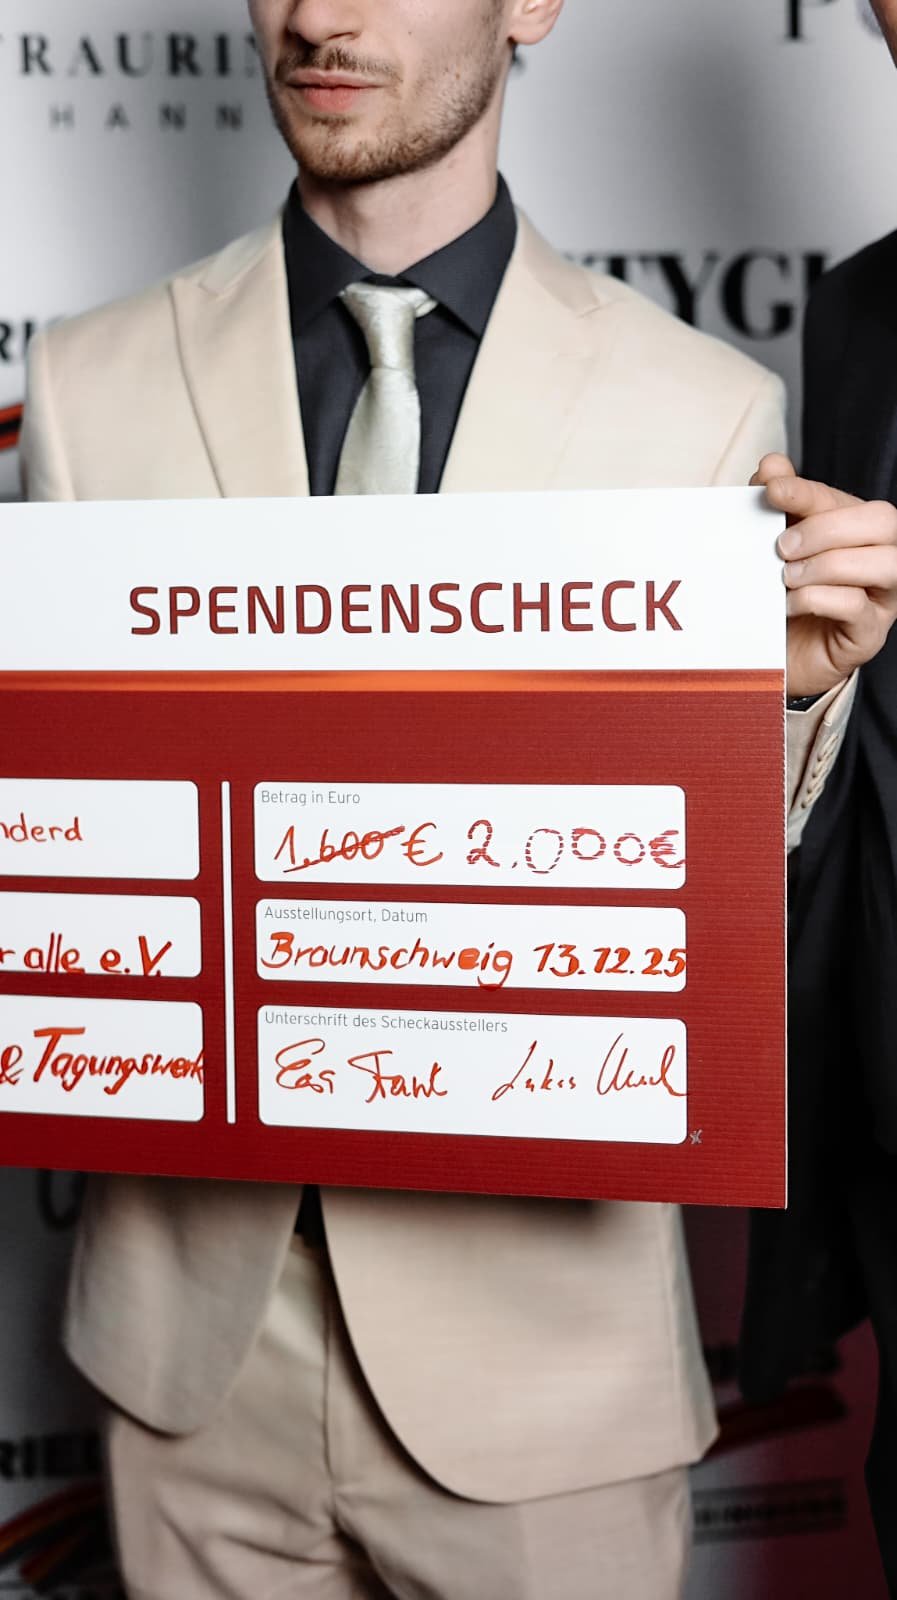 TRAURIN
HANN
TYGL
SPENDENSCHECK
nderd
Betrag in Euro
1.600 € 2.000€
r alle e.V.
Ausstellungsort, Datum
Braunschweig 13.12.25
& Tagungswerk
Unterschrift des Scheckausstellers